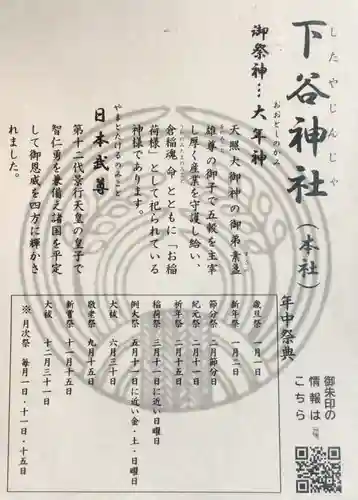 下谷神社（本社）
したやじんじゃ
御祭神…大年神
おおとしのかみ
天照大御神の御弟素盞
すさ
雄尊の御子で五穀を主宰
し厚く産業を守護し給い、
倉稲魂命とともに「お稲
荷様」として祀られている
神様であります。
日本武尊
やまとたけるのみこと
第十二代景行天皇の皇子で
智仁勇を兼備え諸国を平定
して御恩威を四方に輝かさ
れました。
年中祭典
歳旦祭 一月一日
新年祭 一月二日
節分祭 二月節分日
紀元祭 二月十一日
祈年祭 二月十五日
稲荷祭 三月十一日に近い日曜日
例大祭 五月十一日に近い金・土・日曜日
大祓 六月三十日
敬老祭 九月十五日
新嘗祭 十一月十五日
大祓 十二月三十一日
※月次祭 毎月一日・十一日・十五日
御朱印の
情報は
こちら